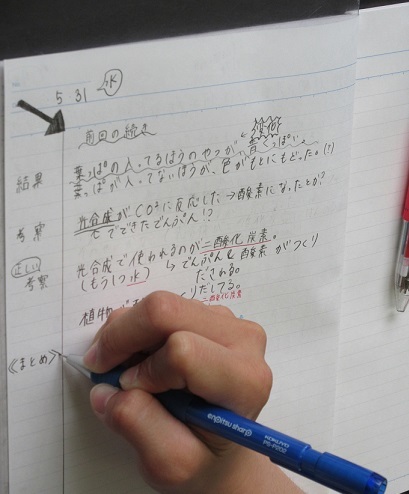 5 31 水
前回の続き
結果 葉っぱの入ってるほうのやつが 青くっぽい。
葉っぱが入ってないほうが、色がもとにもどった。(?)
考察 光合成がCO²に反応した→酸素になったとか?
でできたでんぷん!?
正しい考察 光合成で使われるのが二酸化炭素。
(もう1つ水) ↳でんぷん&酸素がつくり
だされる。
植物 くりだしてる。
二酸化炭素
《まとめ》
enpitsu sharp
KOKUYO